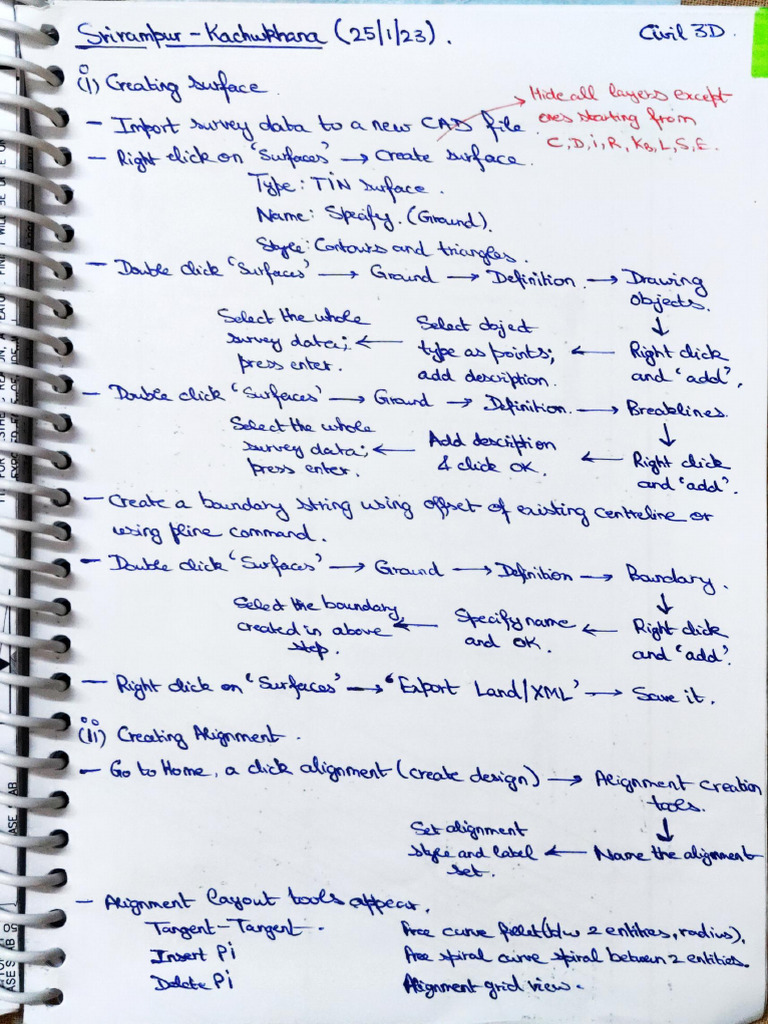 Srirampur - Kachukhana (25/1/23).
Civil 3D.
(i) Creating surface.
- Import survey data to a new CAD file.
Hide all layers except
ones starting from
C, D, i, R, KB, L, S, E.
- Right click on 'Surfaces' → create surface.
Type: TIN surface.
Name: Specify. (Ground).
Style: Contours and triangles.
- Double click 'Surfaces' → Ground → Definition → Drawing
objects.
↓
Right click
and 'add'.
← Select object
type as points;
add description.
← Select the whole
survey data;
press enter.
- Double click 'Surfaces' → Ground → Definition. → Breaklines.
↓
Right click
and 'add'.
← Add description
& click OK.
← Select the whole
survey data;
press enter.
- Create a boundary string using offset of existing centreline or
using pline command.
- Double click 'Surfaces' → Ground → Definition → Boundary.
↓
Right click
and 'add'.
← Specify name
and OK.
← Select the boundary
created in above
step.
- Right click on 'Surfaces' → 'Export Land/XML' → Save it.
(ii) Creating Alignment.
- Go to Home, a click alignment (create design) → Alignment creation
tools.
↓
Name the alignment
← Set alignment
style and label
set.
- Alignment layout tools appear.
Tangent-Tangent. Free curve fillet (b/w 2 entities, radius),
Insert Pi Free spiral curve spiral between 2 entities.
Delete Pi Alignment grid view.